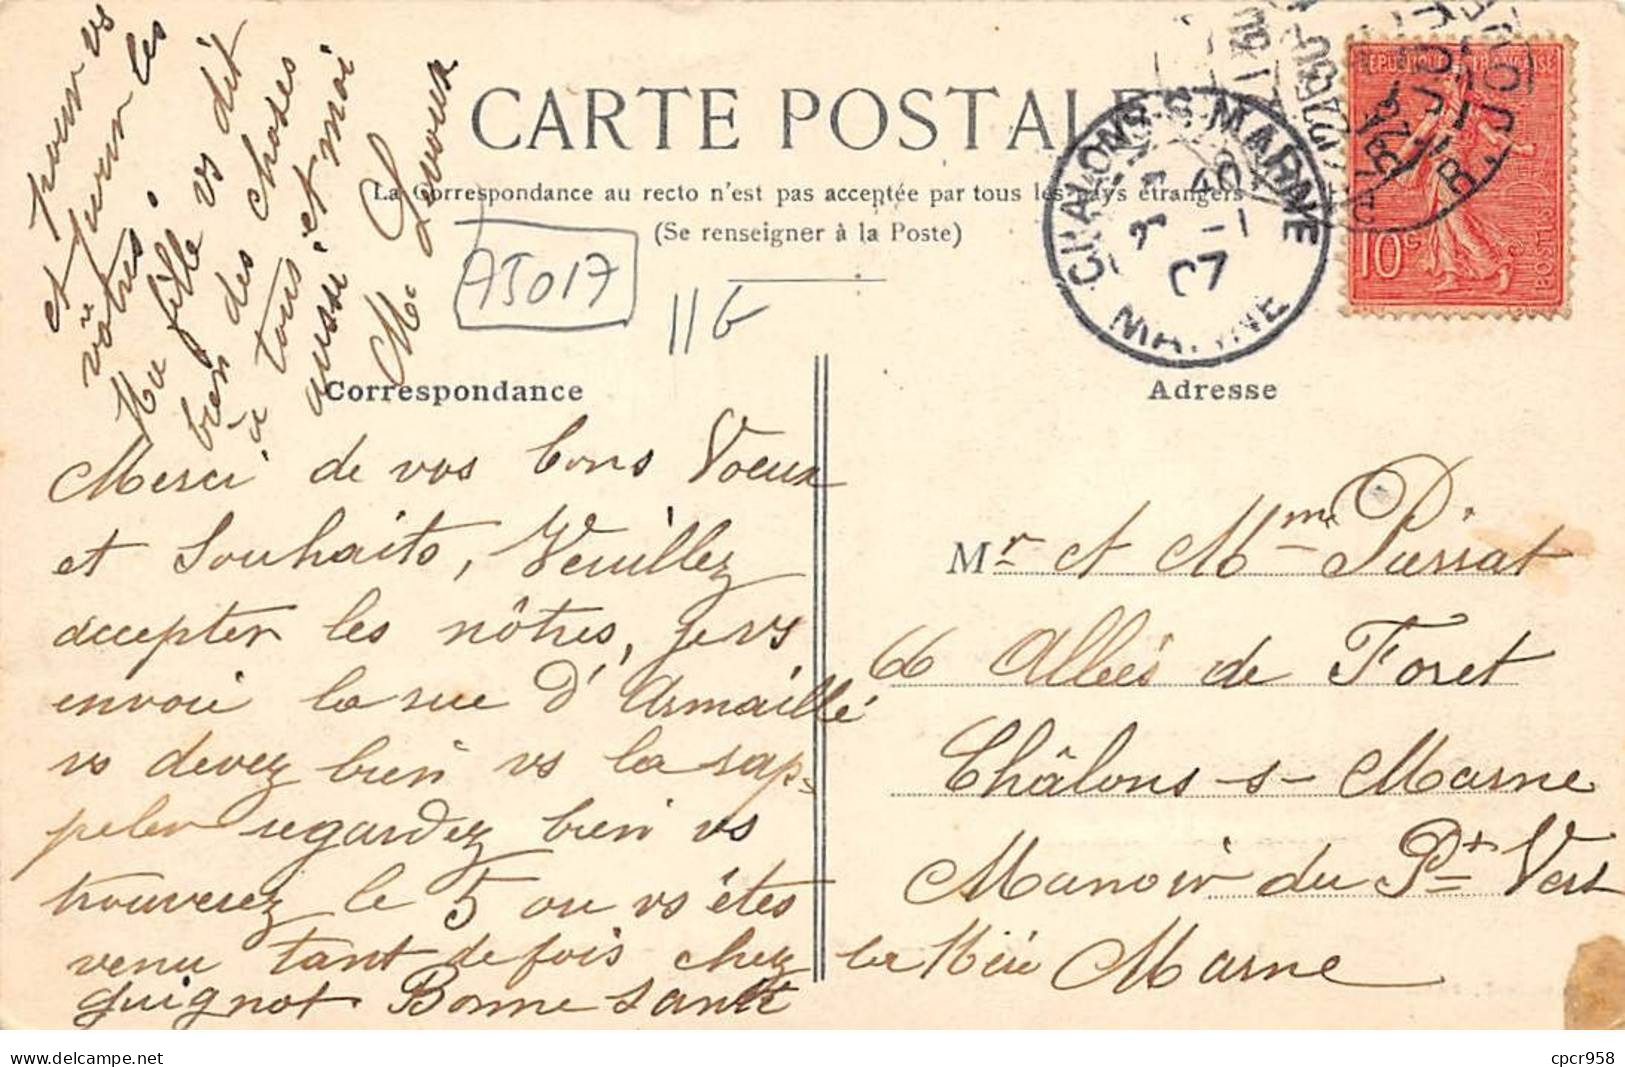 CARTE POSTALE
La Correspondance au recto n'est pas acceptée par tous les pays étrangers
(Se renseigner à la Poste)
RÉPUBLIQUE FRANÇAISE
10c
POSTES
CHALONS-S-MARNE
40
-1
07
MARNE
A5017
116
Correspondance
Merci de vos bons Voeux
et Souhaits, Veuillez
accepter les nôtres, je vs
envoie la rue d'Armaillé
vs devez bien vs la rap-
peler regardez bien vs
trouverez le 5 ou vs êtes
venu tant de fois chez
guignot Bonne santé
et pour vs
et pour les
vôtres.
Ma fille vs dit
bien des choses
à tous et moi
aussi
Adresse
Mr et Mme Pierrat
66 Allées de Foret
Châlons-s-Marne
Manoir du Pt Vert
Marne
cpcr958